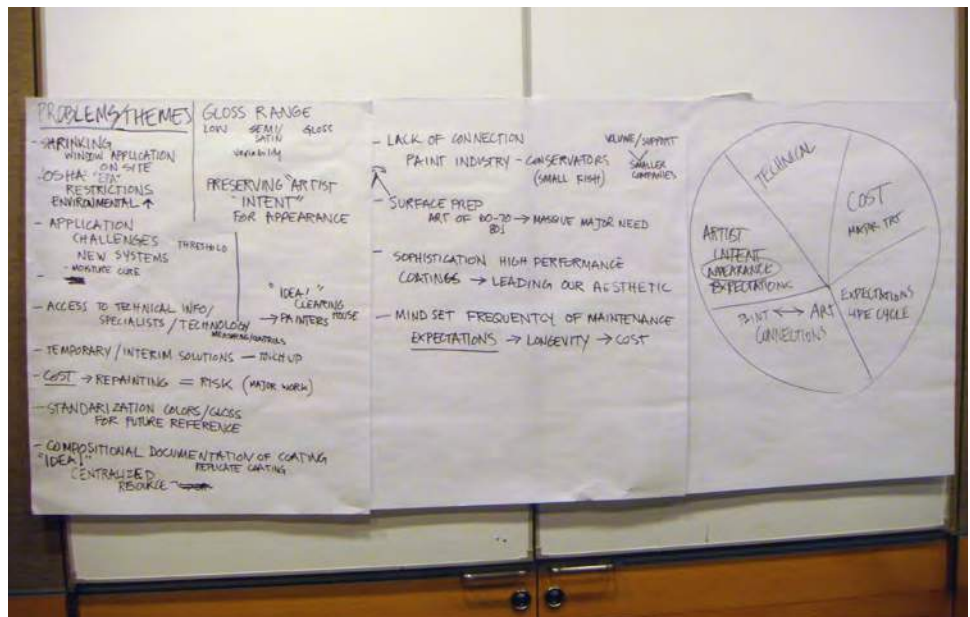 PROBLEMS/THEMES
- SHRINKING
WINDOW APPLICATION
ON SITE
- OSHA "EPA"
RESTRICTIONS
ENVIRONMENTAL ↑
- APPLICATION
CHALLENGES
NEW SYSTEMS
- MOISTURE CURE
-
- ACCESS TO TECHNICAL INFO/
SPECIALISTS/TECHNOLOGY
MEASURING/CONTROLS
- TEMPORARY/INTERIM SOLUTIONS — TOUCH UP
- COST → REPAINTING = RISK (MAJOR WORK)
- STANDARIZATION COLORS/GLOSS
FOR FUTURE REFERENCE
- COMPOSITIONAL DOCUMENTATION OF COATING
"IDEA!" REPLICATE COATING
CENTRALIZED
RESOURCE
GLOSS RANGE
LOW SEMI/ GLOSS
SATIN
variability
PRESERVING "ARTIST
"INTENT"
FOR APPEARANCE
THRESHOLD
"IDEA!"
CLEARING
→ PAINTERS HOUSE
- LACK OF CONNECTION
PAINT INDUSTRY - CONSERVATORS
(SMALL FISH)
VOLUME/SUPPORT
SMALLER
COMPANIES
- SURFACE PREP
ART OF 60-70 → MASSIVE MAJOR NEED
80]
- SOPHISTICATION HIGH PERFORMANCE
COATINGS → LEADING OUR AESTHETIC
- MIND SET FREQUENTCY OF MAINTENANCE
EXPECTATIONS → LONGEVITY → COST
TECHNICAL
COST
MAJOR TRT
ARTIST
INTENT
APPEARANCE
EXPECTATIONS
EXPECTATIONS
LIFE CYCLE
PAINT ↔ ART
CONNECTIONS